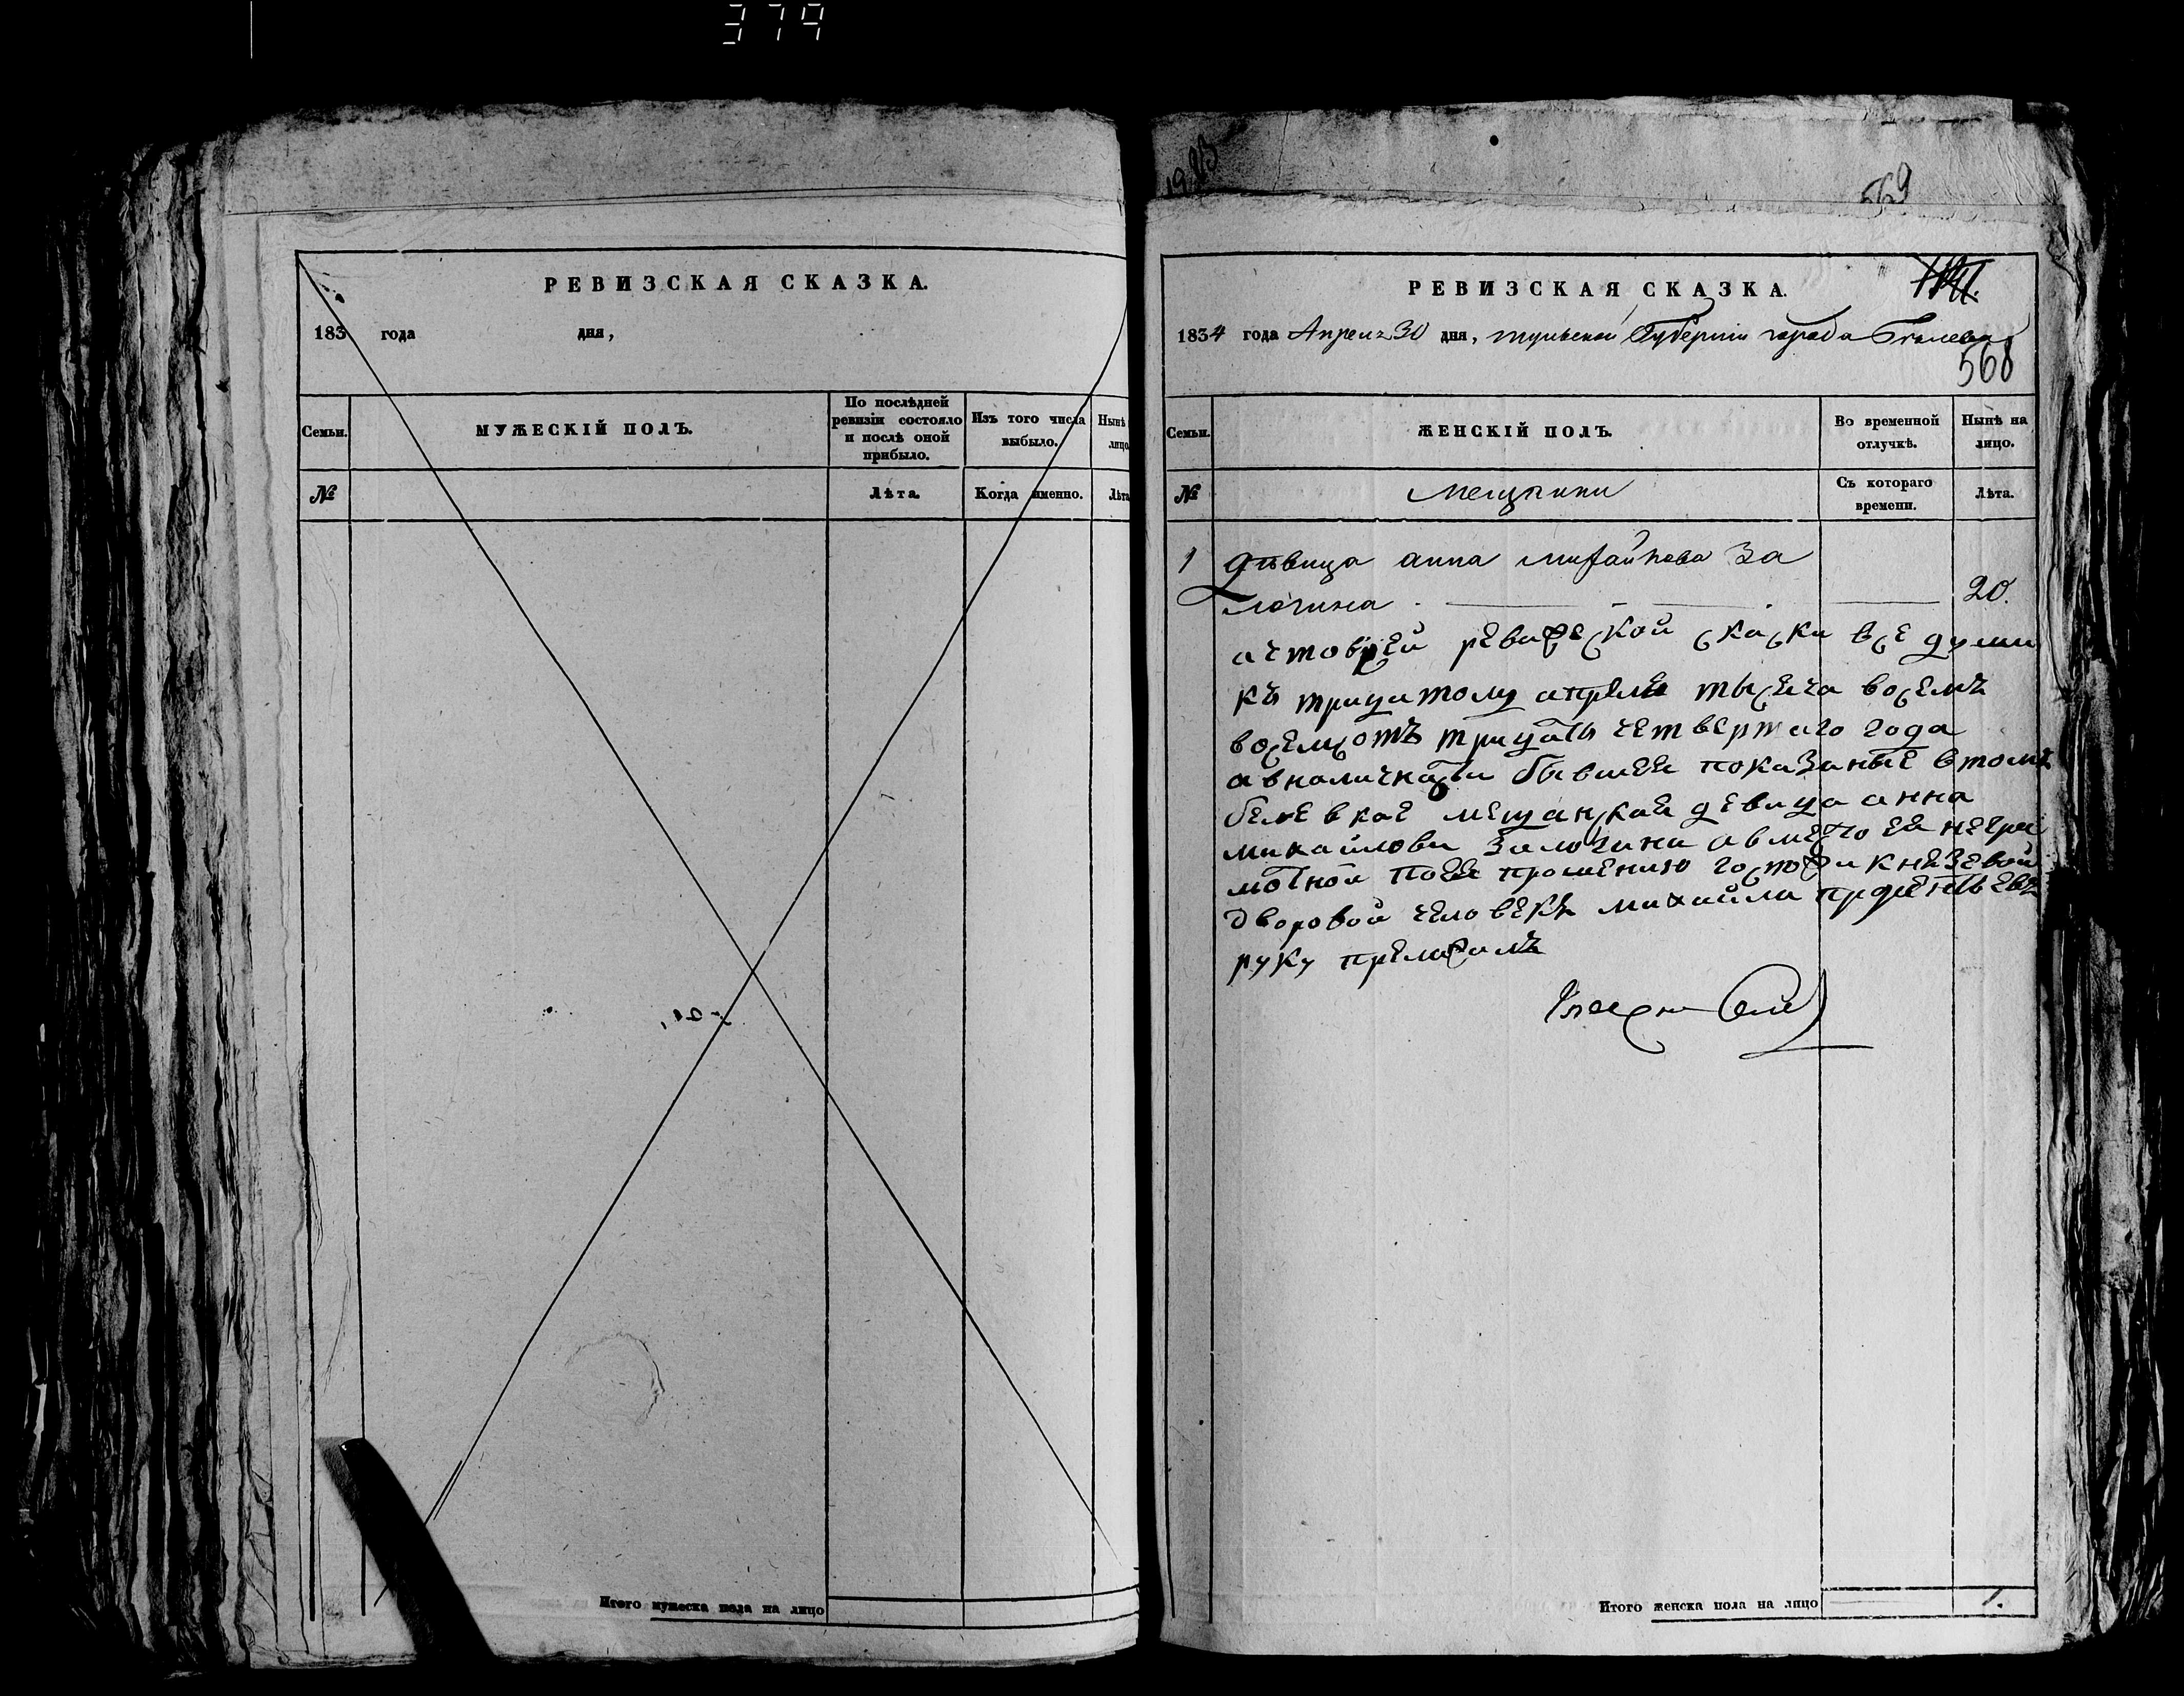 379
РЕВИЗСКАЯ СКАЗКА.
183 года дня,
Семьи.
МУЖЕСКІЙ ПОЛЪ.
По послѣдней ревизіи состояло и послѣ оной прибыло.
Изъ того числа выбыло.
Нынѣ лицо
№
Лѣта.
Когда именно.
Лѣта
Итого мужеска пола на лицо
569
РЕВИЗСКАЯ СКАЗКА.
1834 года Апреля 30 дня, тульской Губерніи города Бѣлева
568
Семьи.
ЖЕНСКІЙ ПОЛЪ.
Во временной отлучкѣ.
Нынѣ на лицо.
№
мещанки
Съ котораго времени.
Лѣта.
1 дѣвица анна михайлова За
логина 20.
ревизской скаски все души
къ трицатому апреля тысеча восемъ
восемсотъ трицать четвертаго года
бывшея показаные втомъ
мещанская девица анна
михайлова залогина авместо ея негра
мотной поея прошению госпожи князевой
дворовой человекъ михайла
руку преложилъ
Итого женска пола на лицо 1.